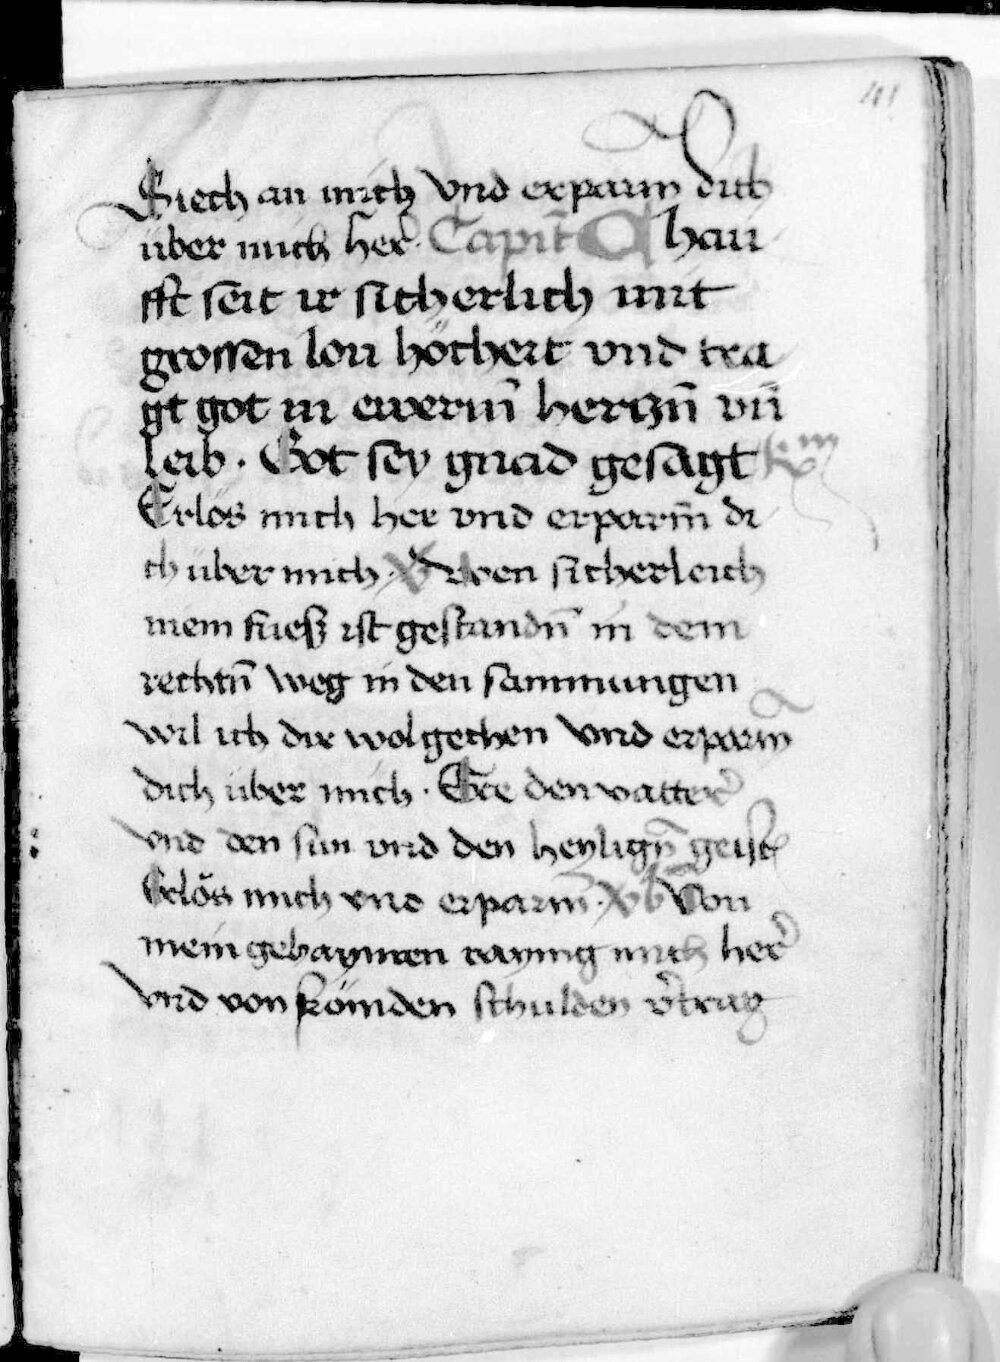 41
Siech an mich vnd erparm dich
über mich her. Capit̄ Chau
fft seit ir sicherlich mit
grossen lon höchert vnd tra
gt got in ewerm̄ hertzn̄ vn̄
leib. Got sey gnad gesagt
Erlös mich her vnd erparm̄ di
ch über mich. V̓ Wen sicherleich
mein fuesz ist gestandn̄ in dem
rechtn̄ weg in den sammungen
wil ich dir wolgechen vnd erparm̄
dich über mich. Ere den vatter̓
vnd den sun vnd den heylign̄ geist
Erlös mich vnd erparm̄. v̓b Von
mein gehaymen rayning mich her̓
vnd von främden schulden v̓trag